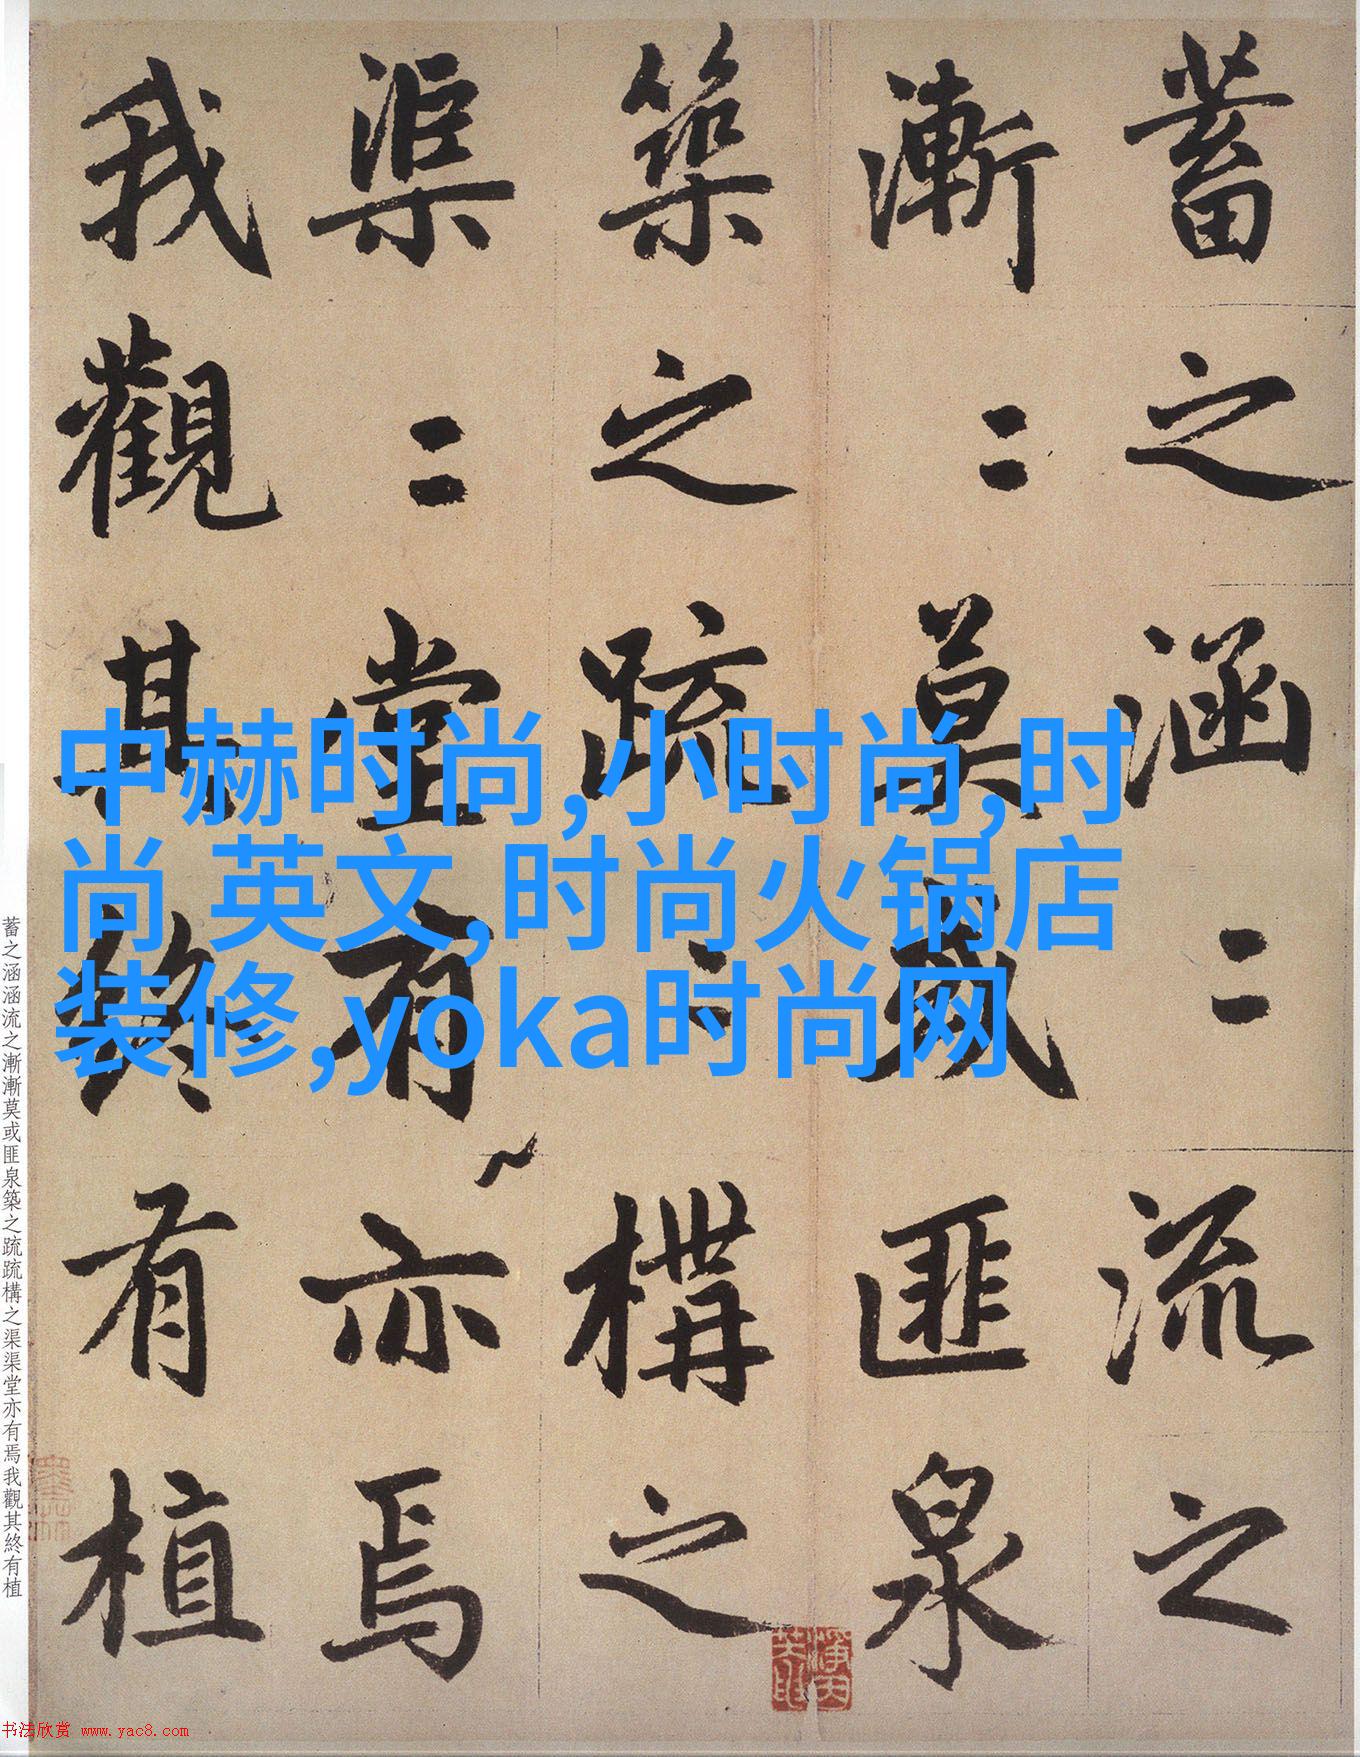 蓄之涵〻流之
漸〻莫或匪泉
築之疏〻構之
渠〻堂有亦焉
我觀其終有植
中赫时尚,小时尚,时
尚 英文,时尚火锅店
装修,yoka时尚网
蓄之涵涵流之漸漸莫或匪泉築之疏疏構之渠渠堂亦有焉我觀其終有植
书法欣赏 www.yac8.com